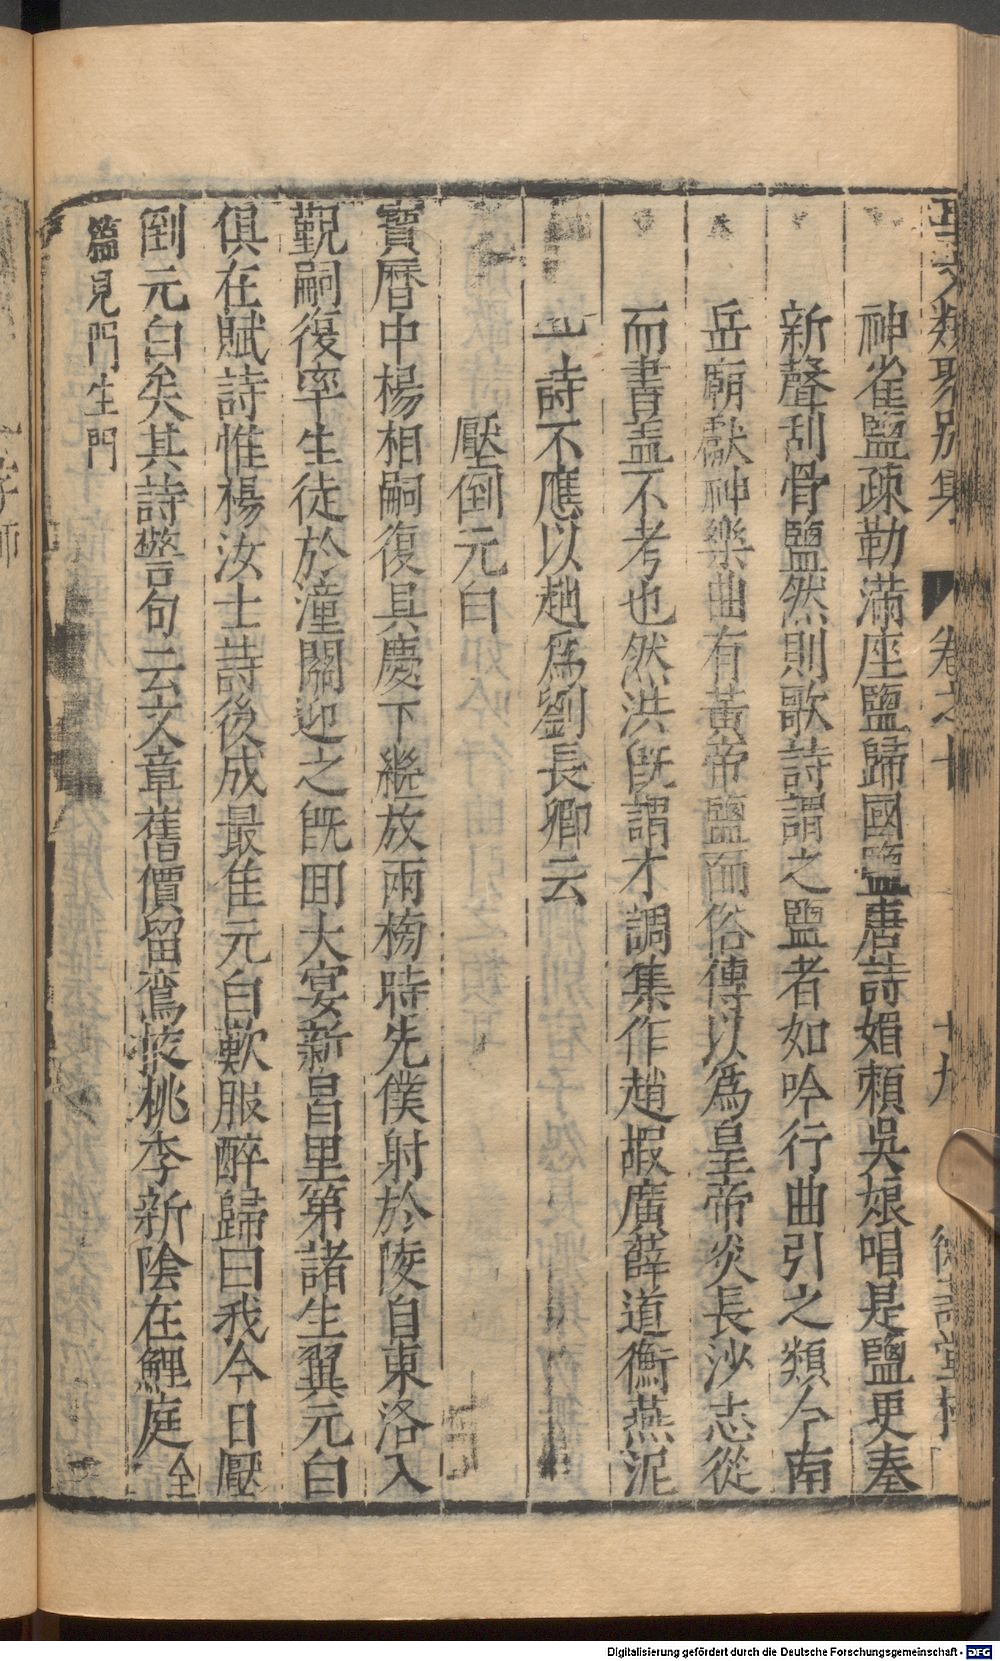 事文類聚別集 卷之十 十九 德壽堂梓
神雀鹽疎勒滿座鹽歸國鹽唐詩媚頼吳娘唱是鹽更奏
新聲刮骨鹽然則歌詩謂之鹽者如吟行曲引之類今南
岳廟獻神樂曲有黃帝鹽而俗傳以爲皇帝炎長沙志從
而書盖不考也然洪旣謂才調集作趙嘏廣薛道衡燕泥
詩不應以趙爲劉長卿云
壓倒元白
寳曆中楊相嗣復具慶下繼放兩榜時先僕射於陵自東洛入
覲嗣復率生徒於潼關迎之旣囬大宴新昌里第諸生翼元白
俱在賦詩惟楊汝士詩後成最佳元白歎服醉歸曰我今日壓
倒元白矣其詩警句云文章舊價留鸞掖桃李新陰在鯉庭全
篇見門生門
Digitalisierung gefördert durch die Deutsche Forschungsgemeinschaft - DFG